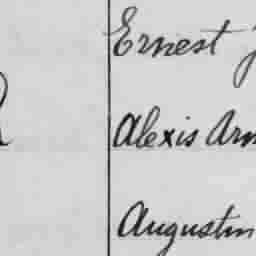 Ernest
Alexis Arm
Augustin